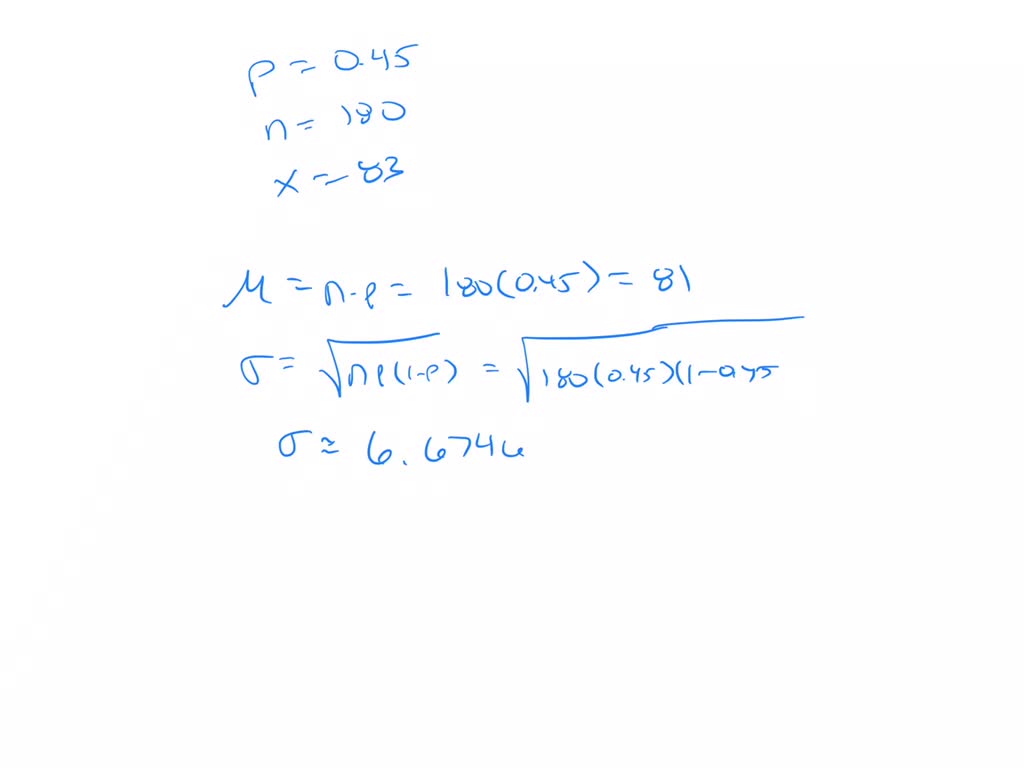 p = 0.45
n = 180
x = 83
μ = n·p = 180(0.45) = 81
σ = √np(1-p) = √180(0.45)(1-0.45
σ ≈ 6.6746